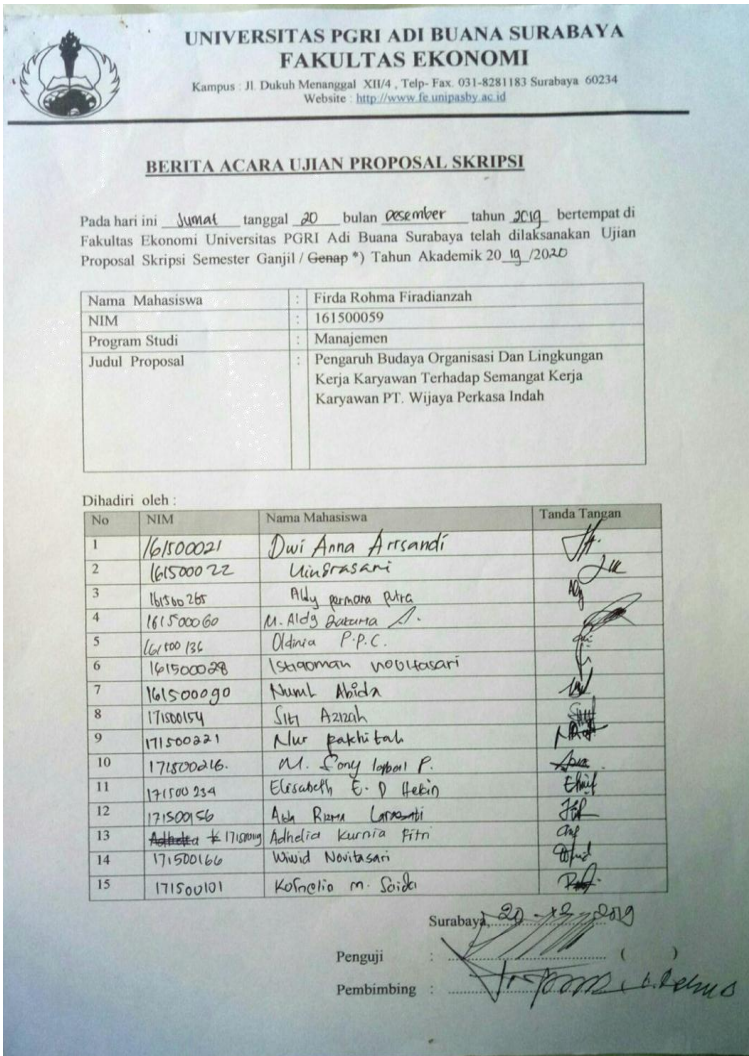 UNIVERSITAS PGRI ADI BUANA SURABAYA
FAKULTAS EKONOMI
Kampus : Jl. Dukuh Menanggal XII/4 , Telp- Fax. 031-8281183 Surabaya 60234
Website : http://www.fe.unipasby.ac.id
BERITA ACARA UJIAN PROPOSAL SKRIPSI
Pada hari ini Jumat tanggal 20 bulan Desember tahun 2019 bertempat di
Fakultas Ekonomi Universitas PGRI Adi Buana Surabaya telah dilaksanakan Ujian
Proposal Skripsi Semester Ganjil / Genap *) Tahun Akademik 20 19 /2020
Nama Mahasiswa : Firda Rohma Firadianzah
NIM : 161500059
Program Studi : Manajemen
Judul Proposal : Pengaruh Budaya Organisasi Dan Lingkungan
Kerja Karyawan Terhadap Semangat Kerja
Karyawan PT. Wijaya Perkasa Indah
Dihadiri oleh :
No NIM Nama Mahasiswa Tanda Tangan
1 161500021 Dwi Anna Arrsandi
2 161500022
3 161500265 Aldy permana putra
4 161500060 M. Aldy
5 161500136 Oldinia P.P.C.
6 161500028
7 161500090 Nurul Abida
8 171500154 Siti Azizah
9 171500221 Nur
10 171500216. M.
11 171500234 Elisabeth E. D
12 171500156
13 Adhelia Kurnia Fitri
14 171500166 Wiwid Novitasari
15 171500101 M.
Surabaya, 20 - 12 - 2019
Penguji : ( )
Pembimbing :